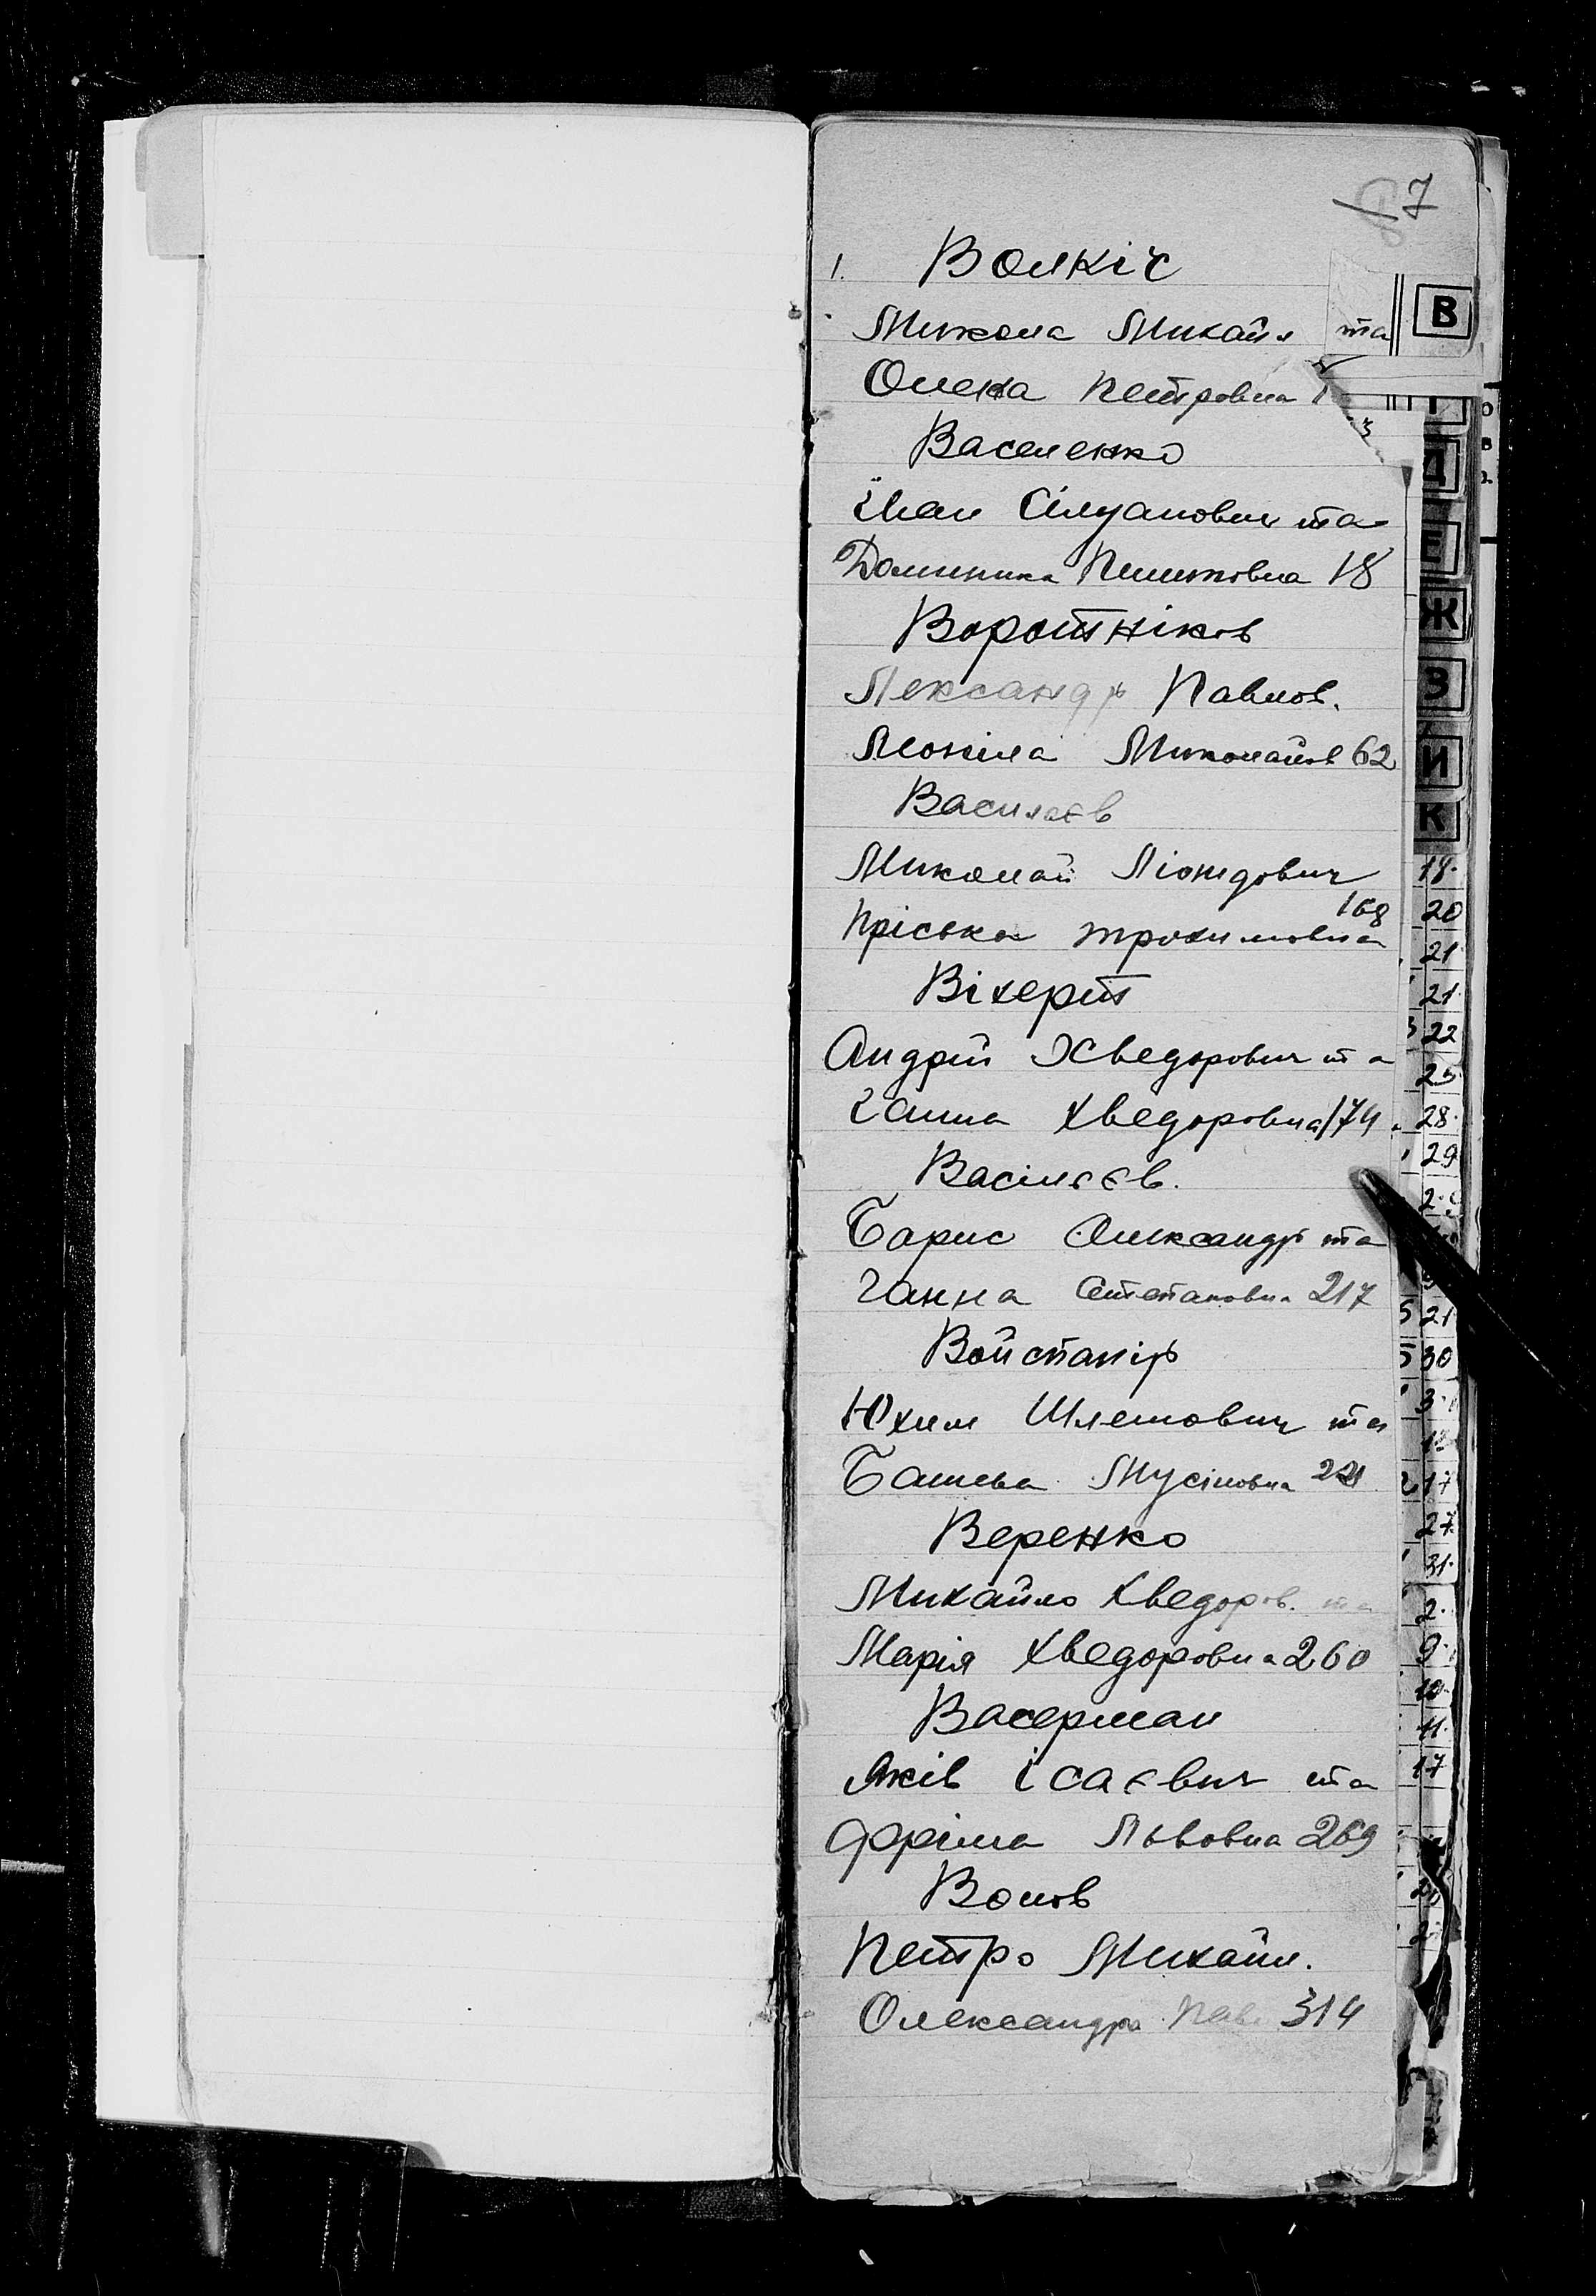 7
1. Волкіч
Микола Михайл та
Олена Петровна
Василенко
Іван Сілуанович та
Доминика Пилиповна 18
Воротніков
Лександр Павлов.
Леоніла Миколаїв 62
Васильєв
Миколай Ліонідович
168
Пріська Трохимовна
Віхерт
Андрій Хведорович та
Ганна Хведоровна 174
Васільєв.
Борис Олександр та
Ганна Степановна 217
Войстанір
Юхим Шлемович та
Башева Мусіновна 221
Веренко
Михайло Хведоров. та
Марія Хведоровна 260
Васерман
Яків Ісаєвич та
Фріма Львовна 269
Волов
Петро Михайл.
Олександра Пав 314
В
Д
Е
Ж
З
И
К
18.
20
21
21.
22
25
28.
29
21
30
17
27
31.
2.
9.
10.
11.
17